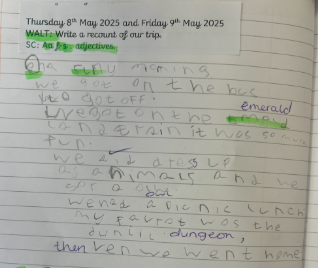 Thursday 8th May 2025 and Friday 9th May 2025
WALT: Write a recount of our trip.
SC: Aa fs . adjectives
morning
we got on the bus
we got off.
emerald
We got on the
land train it was so much
fun.
we did dress up
as animals and we
got a
wehad a picnic lunch
my favrot was the
dungeon,
then wen we went home